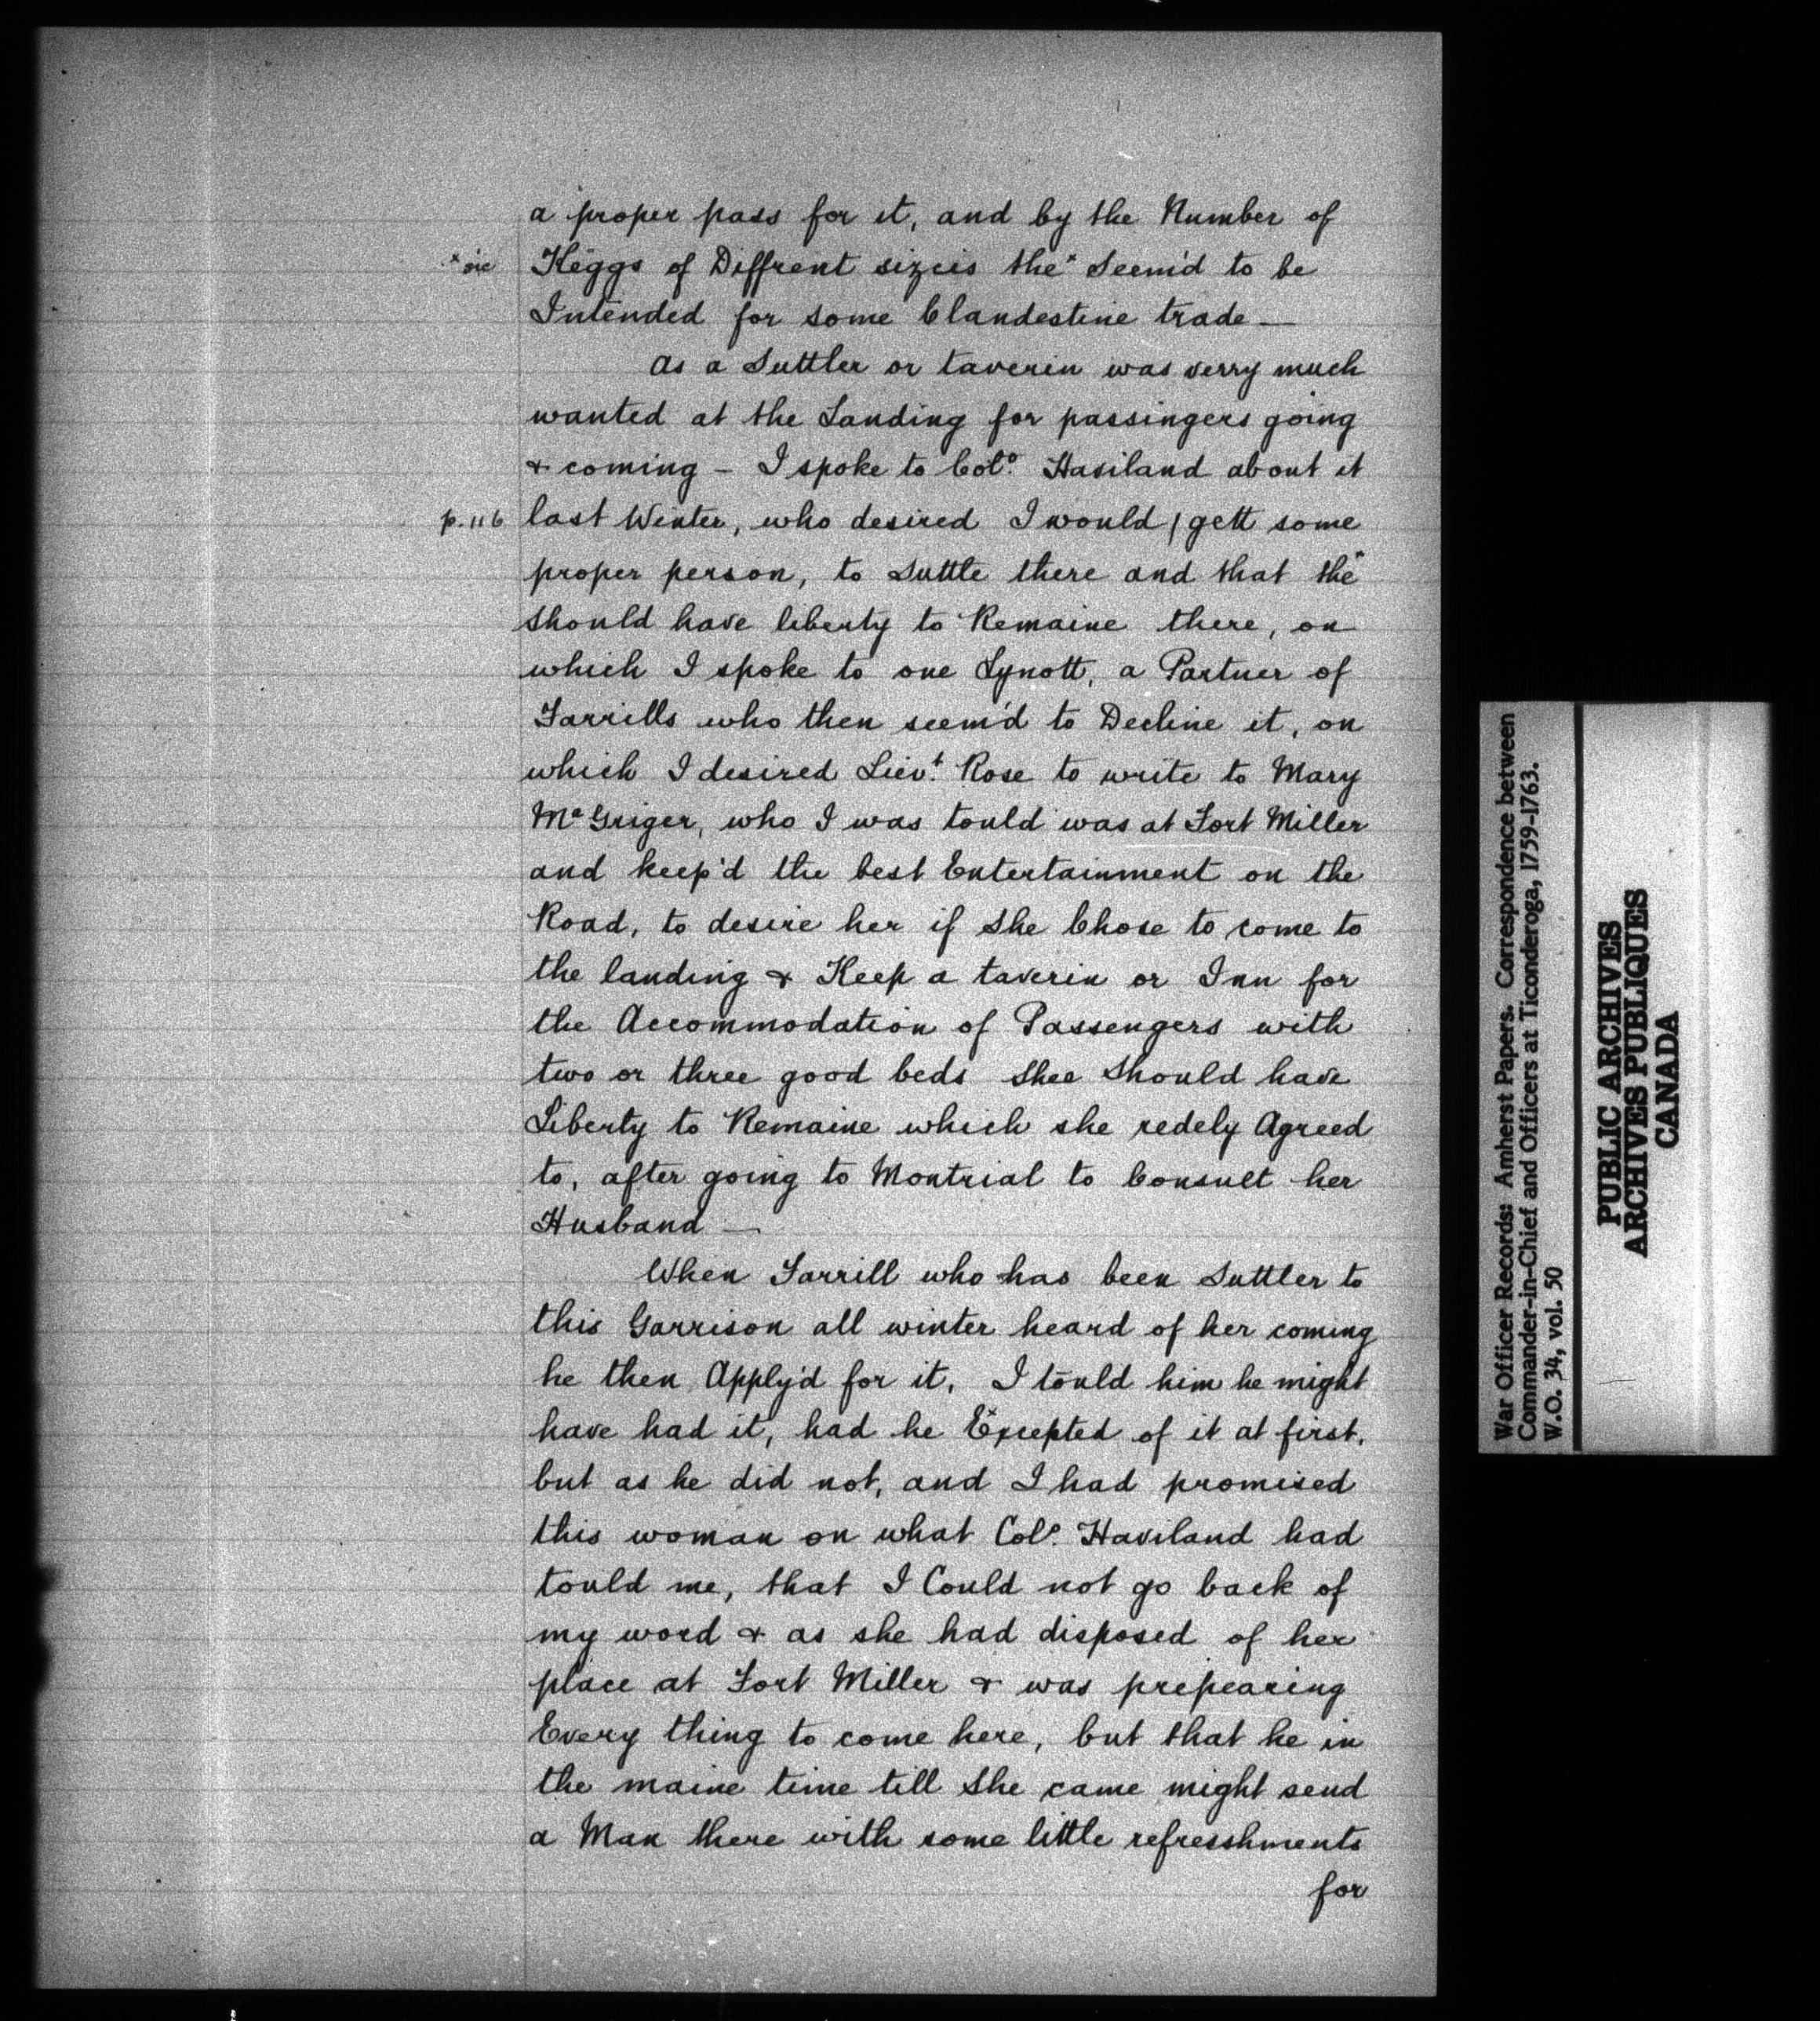 a proper pass for it, and by the Number of
* sic Keggs of Diffrent sizeis the* Seem'd to be
Intended for some Clandestine trade —
As a Suttler or taverin was verry much
wanted at the Landing for passingers going
& coming - I spoke to Colº. Haviland about it
p.116 last Winter, who desired I would / gett some
proper person, to Suttle there and that the*
should have liberty to Remaine there, on
which I spoke to one Lynott, a Partner of
Farrills who then seem'd to Decline it, on
which I desired Lievt. Rose to write to Mary
McGriger, who I was tould was at Fort Miller
and keep'd the best Entertainment on the
Road, to desire her if she Chose to come to
the landing & Keep a taverin or Inn for
the Accommodation of Passengers with
two or three good beds shee should have
Liberty to Remaine which she redely Agreed
to, after going to Montrial to Consult her
Husband —
When Farrill who has been Suttler to
this Garrison all winter heard of her coming
he then Apply'd for it, I tould him he might
have had it, had he Excepted* of it at first,
but as he did not, and I had promised
this woman on what Colº. Haviland had
tould me, that I Could not go back of
my word & as she had disposed of her
place at Fort Miller & was prepearing
Every thing to come here, but that he in
the maine time till she came might send
a Man there with some little refresshments
for
War Officer Records: Amherst Papers. Correspondence between
Commander-in-Chief and Officers at Ticonderoga, 1759-1763.
W.O. 34, vol. 50
PUBLIC ARCHIVES
ARCHIVES PUBLIQUES
CANADA